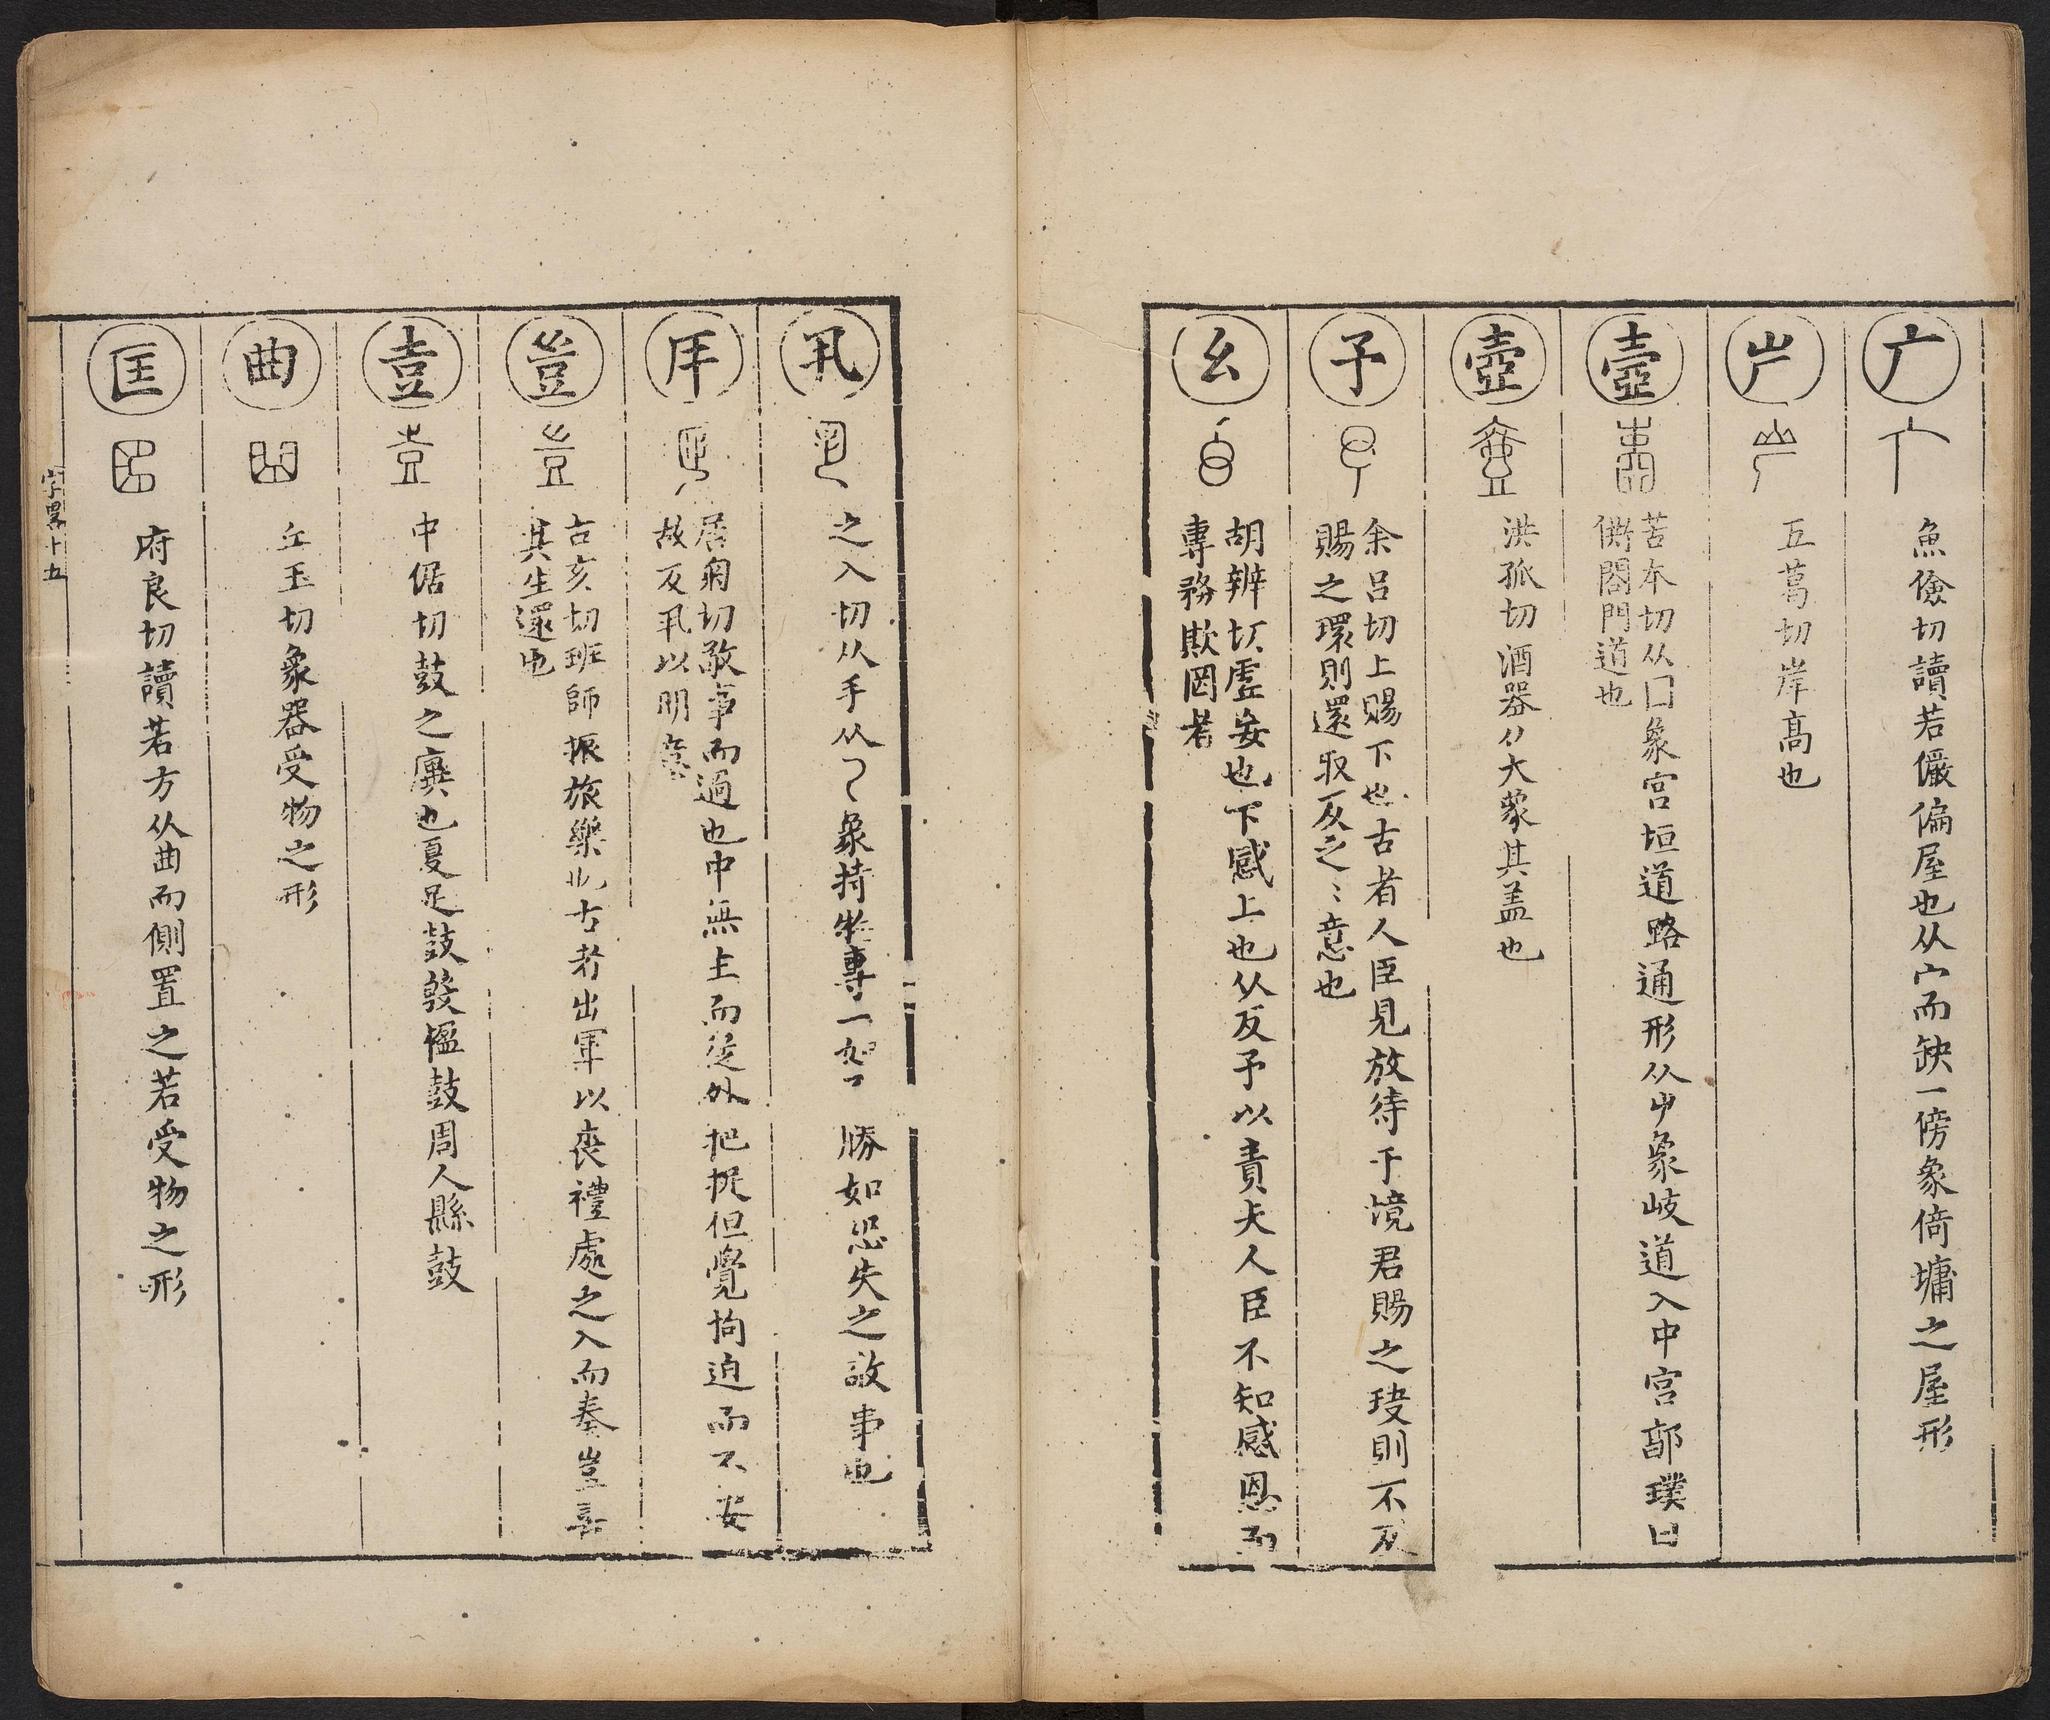 广
魚儉切讀若儼偏屋也从宀而缺一傍象倚墉之屋形
屵
五葛切岸高也
壼
苦本切从囗象宮垣道路通形从屮象岐道入中宮郭璞曰
衖閤門道也
壺
洪孤切酒器从大象其盖也
予
余呂切上賜下也古者人臣見放待于境君賜之玦則不反
賜之環則還取反之之意也
幺
胡辨切虛妄也下惑上也从反予以責夫人臣不知感恩而
專務欺罔者
丮
之入切从手从乁象持物專一如不勝如恐失之敬事也
𠨭
居匊切敬事而過也中無主而從外把捉但覺拘迫而不安
故反丮以明意
豈
古亥切班師振旅樂也古者出軍以喪禮處之入而奏豈喜
其生還也
壴
中倨切鼓之虡也夏足鼓殷楹鼓周人縣鼓
曲
丘玉切象器受物之形
匡
府良切讀若方从曲而側置之若受物之形
字畧十五